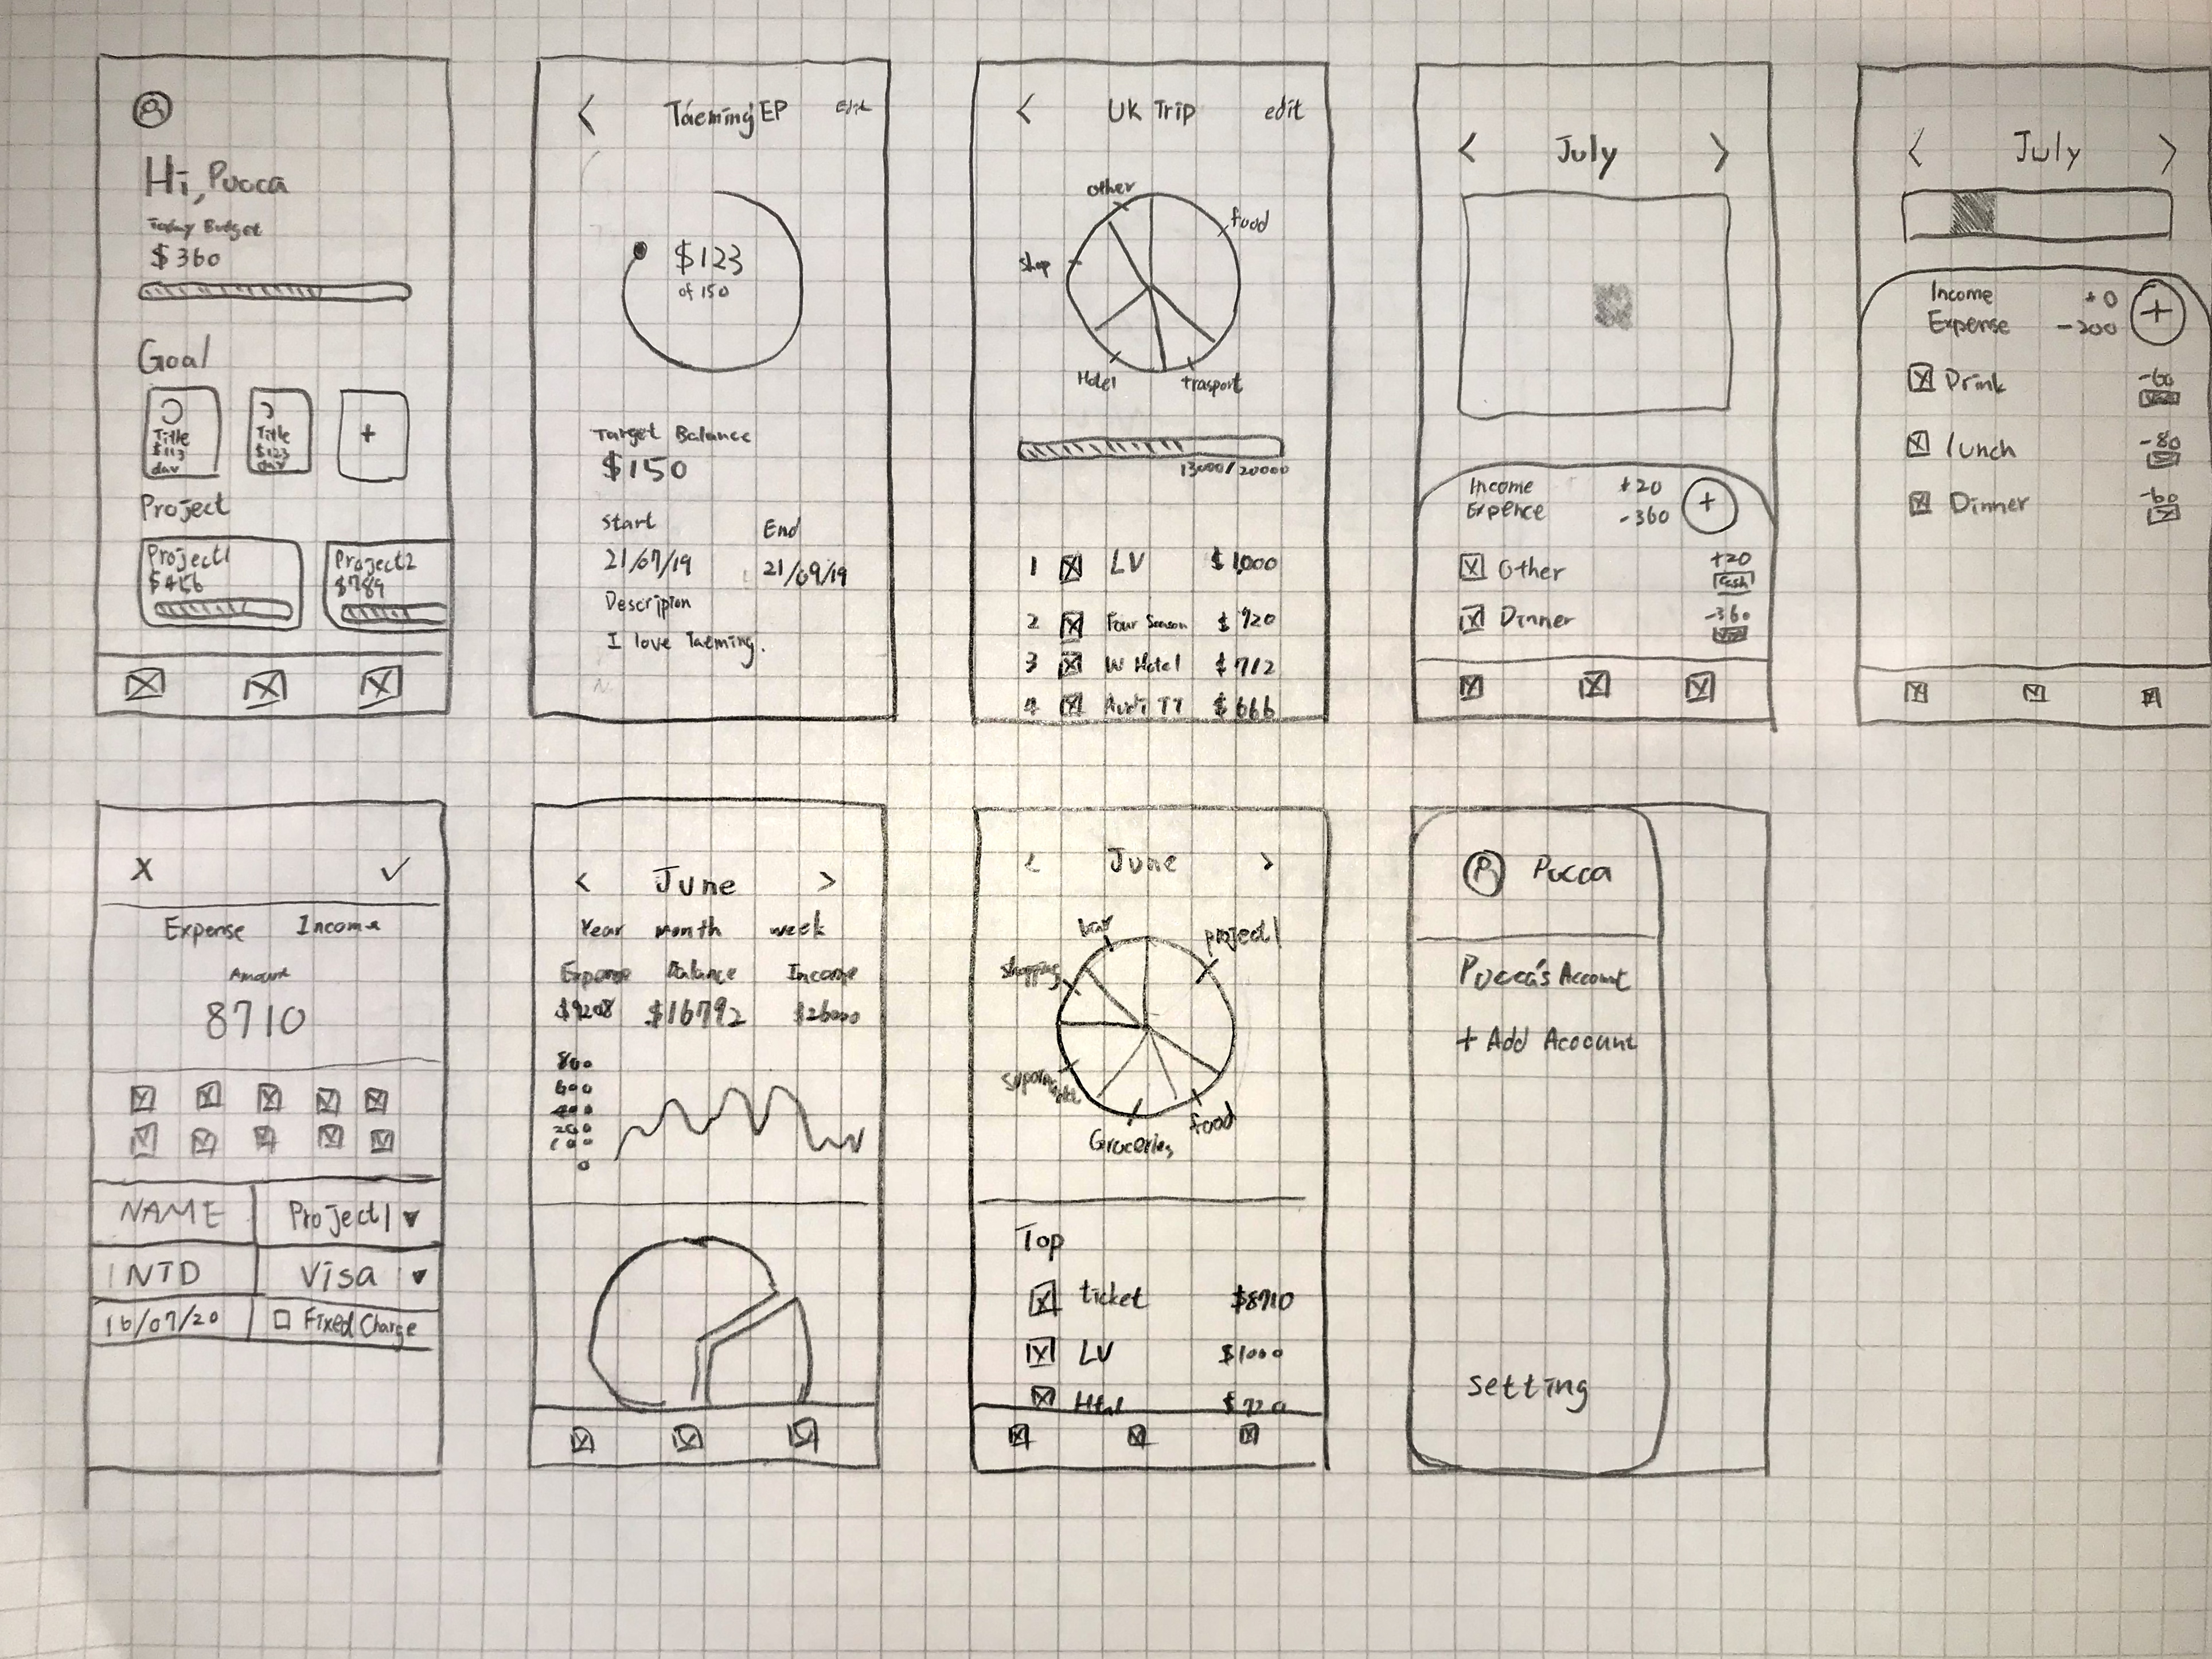 Hi, Pucca
Today Budget
$360
Goal
Title
$113
day
Title
$123
day
+
Project
Project1
$456
Project2
$789
< Taeming EP Edit
$123
of 150
Target Balance
$150
Start End
21/07/19 21/09/19
Descripion
I love Taeming.
< UK Trip edit
other
food
shop
Hotel
trasport
13000/20000
1 LV $1,000
2 Four Season $920
3 W Hotel $712
4 Audi TT $666
< July >
Income +20
Expence -360
+
Other +20
Cash
Dinner -360
< July >
Income +0
Expense -200
+
Drink -60
lunch -80
Dinner -60
X ✓
Expense Income
Amount
8710
NAME Project1 ▼
NTD Visa ▼
16/07/20 Fixed Charge
< June >
Year month week
Expense Balance Income
$9208 $16792 $26000
800
600
400
200
100
0
< June >
bar
project1
shopping
food
Groceries
Top
ticket $8710
LV $1000
Htel $920
Pucca
Pucca's Account
+ Add Account
setting